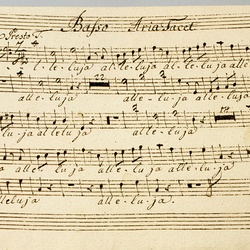 Basso Aria Tacet
Presto
alleluja alleluja alleluja alle
alleluja alle-luja alleluja
luja alleluja
alleluja alleluja alleluja
alleluja alleluja.